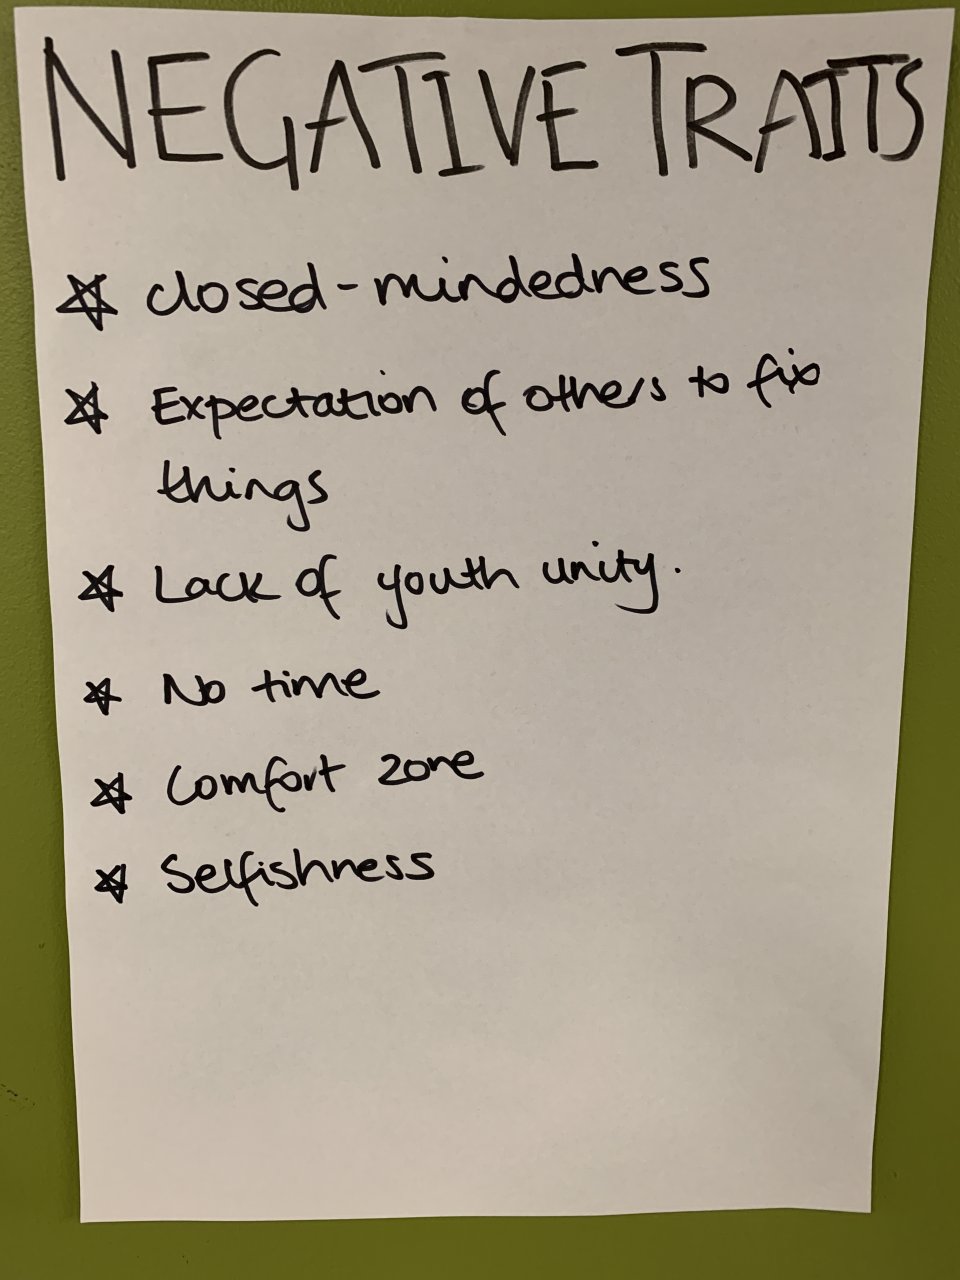 NEGATIVE TRAITS
☆ closed-mindedness
☆ Expectation of others to fix
things
☆ Lack of youth unity.
☆ No time
☆ Comfort zone
☆ Selfishness